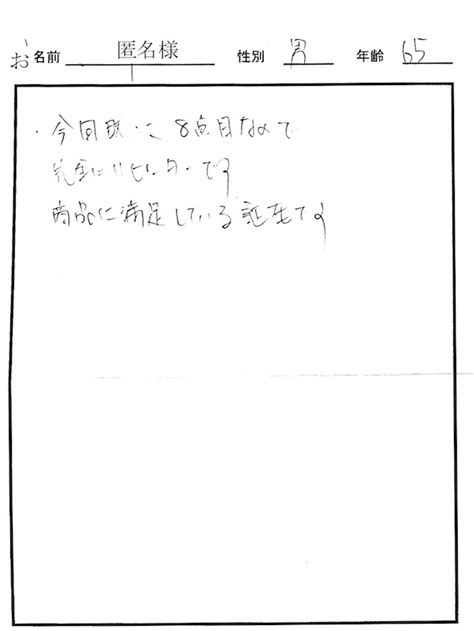 お名前 匿名様 性別 男 年齢 65
・今回 8点目なので
完全にリピーターです
商品に満足している証です